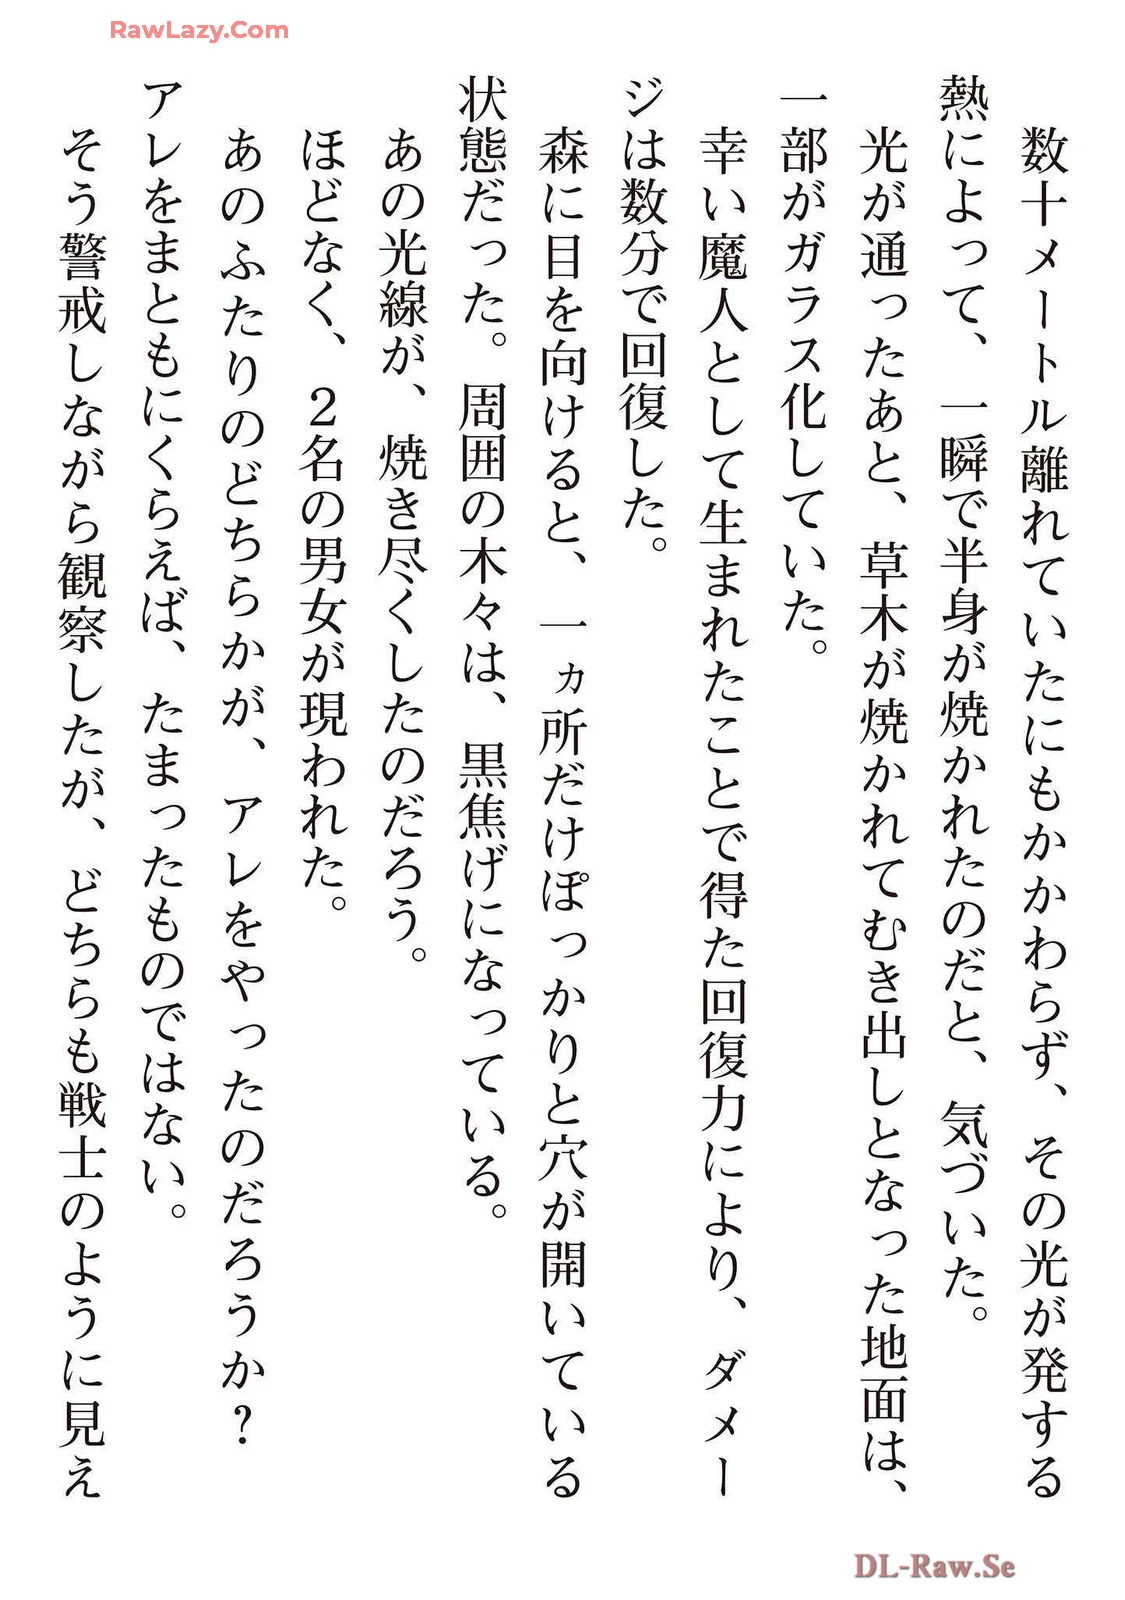 RawLazy.Com
数十メートル離れていたにもかかわらず、その光が発する
熱によって、一瞬で半身が焼かれたのだと、気づいた。
光が通ったあと、草木が焼かれてむき出しとなった地面は、
一部がガラス化していた。
幸い魔人として生まれたことで得た回復力により、ダメー
ジは数分で回復した。
森に目を向けると、一ヵ所だけぽっかりと穴が開いている
状態だった。周囲の木々は、黒焦げになっている。
あの光線が、焼き尽くしたのだろう。
ほどなく、2名の男女が現われた。
あのふたりのどちらかが、アレをやったのだろうか?
アレをまともにくらえば、たまったものではない。
そう警戒しながら観察したが、どちらも戦士のように見え
DL-Raw.Se